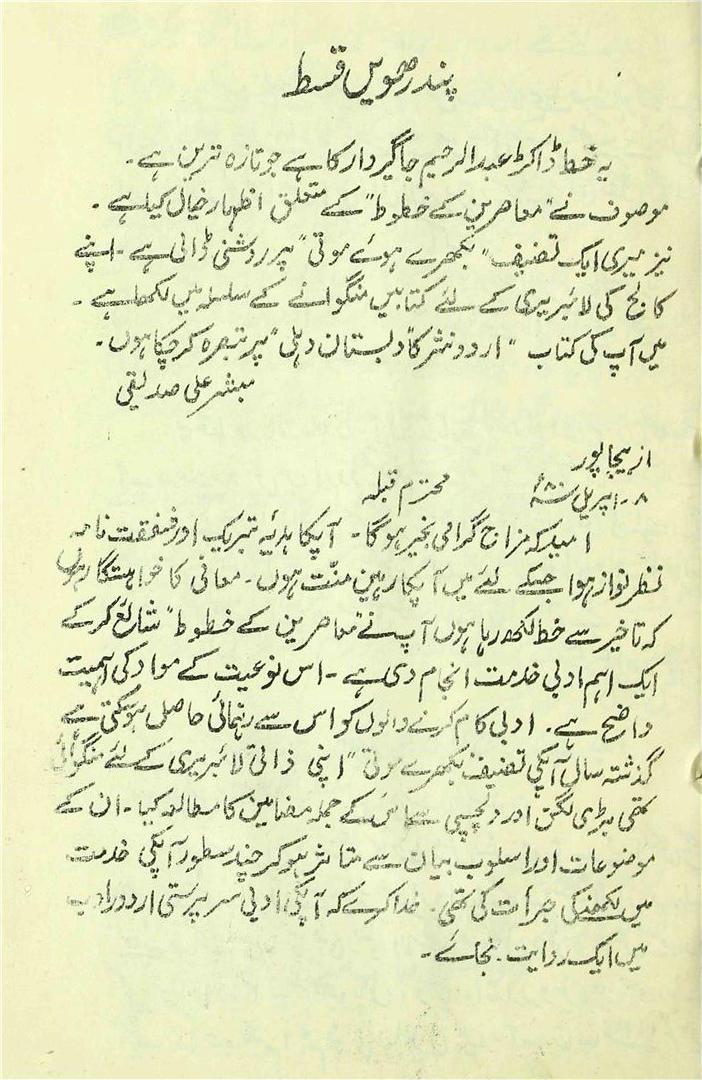 پندرھویں قسط
یہ خط ڈاکٹر عبدالرحیم جاگیردار کا ہے جو تازہ ترین ہے۔
موصوف نے "معاصرین کے خطوط" کے متعلق اظہار خیال کیا ہے۔
نیز میری ایک تصنیف "بکھرے ہوئے موتی" پر روشنی ڈالی ہے۔ اپنے
کالج کی لائبریری کے لئے کتابیں منگوانے کے سلسلہ میں لکھا ہے۔
میں آپ کی کتاب "اردو نثر کا دبستان دہلی" پر تبصرہ کر چکا ہوں۔
مبشر علی صدیقی
از بیجاپور
۸۔ اپریل ۸۰ء
محترم قبلہ
امید کہ مزاج گرامی بخیر ہوگا۔ آپکا ہدیۂ تبریک اور شفقت نامہ
نظر نواز ہوا جسکے لئے میں آپکا رہین منّت ہوں۔ معافی کا خواستگار ہوں
کہ تاخیر سے خط لکھ رہا ہوں آپ نے "معاصرین کے خطوط" شائع کر کے
ایک اہم ادبی خدمت انجام دی ہے۔ اس نوعیت کے مواد کی اہمیت
واضح ہے۔ ادبی کام کرنے والوں کو اس سے رہنمائی حاصل ہو سکتی ہے
گذشتہ سال آپکی تصنیف بکھرے موتی" اپنی ذاتی لائبریری کے لئے منگوائی
تھی بڑی لگن اور دلچسپی سے اس کے جملہ مضامین کا مطالعہ کیا۔ ان کے
موضوعات اور اسلوب بیان سے متاثر ہو کر چند سطور آپکی خدمت
میں لکھنے کی جرأت کی تھی۔ خدا کرے کہ آپکی ادبی سرپرستی اردو ادب
میں ایک روایت بنجائے۔